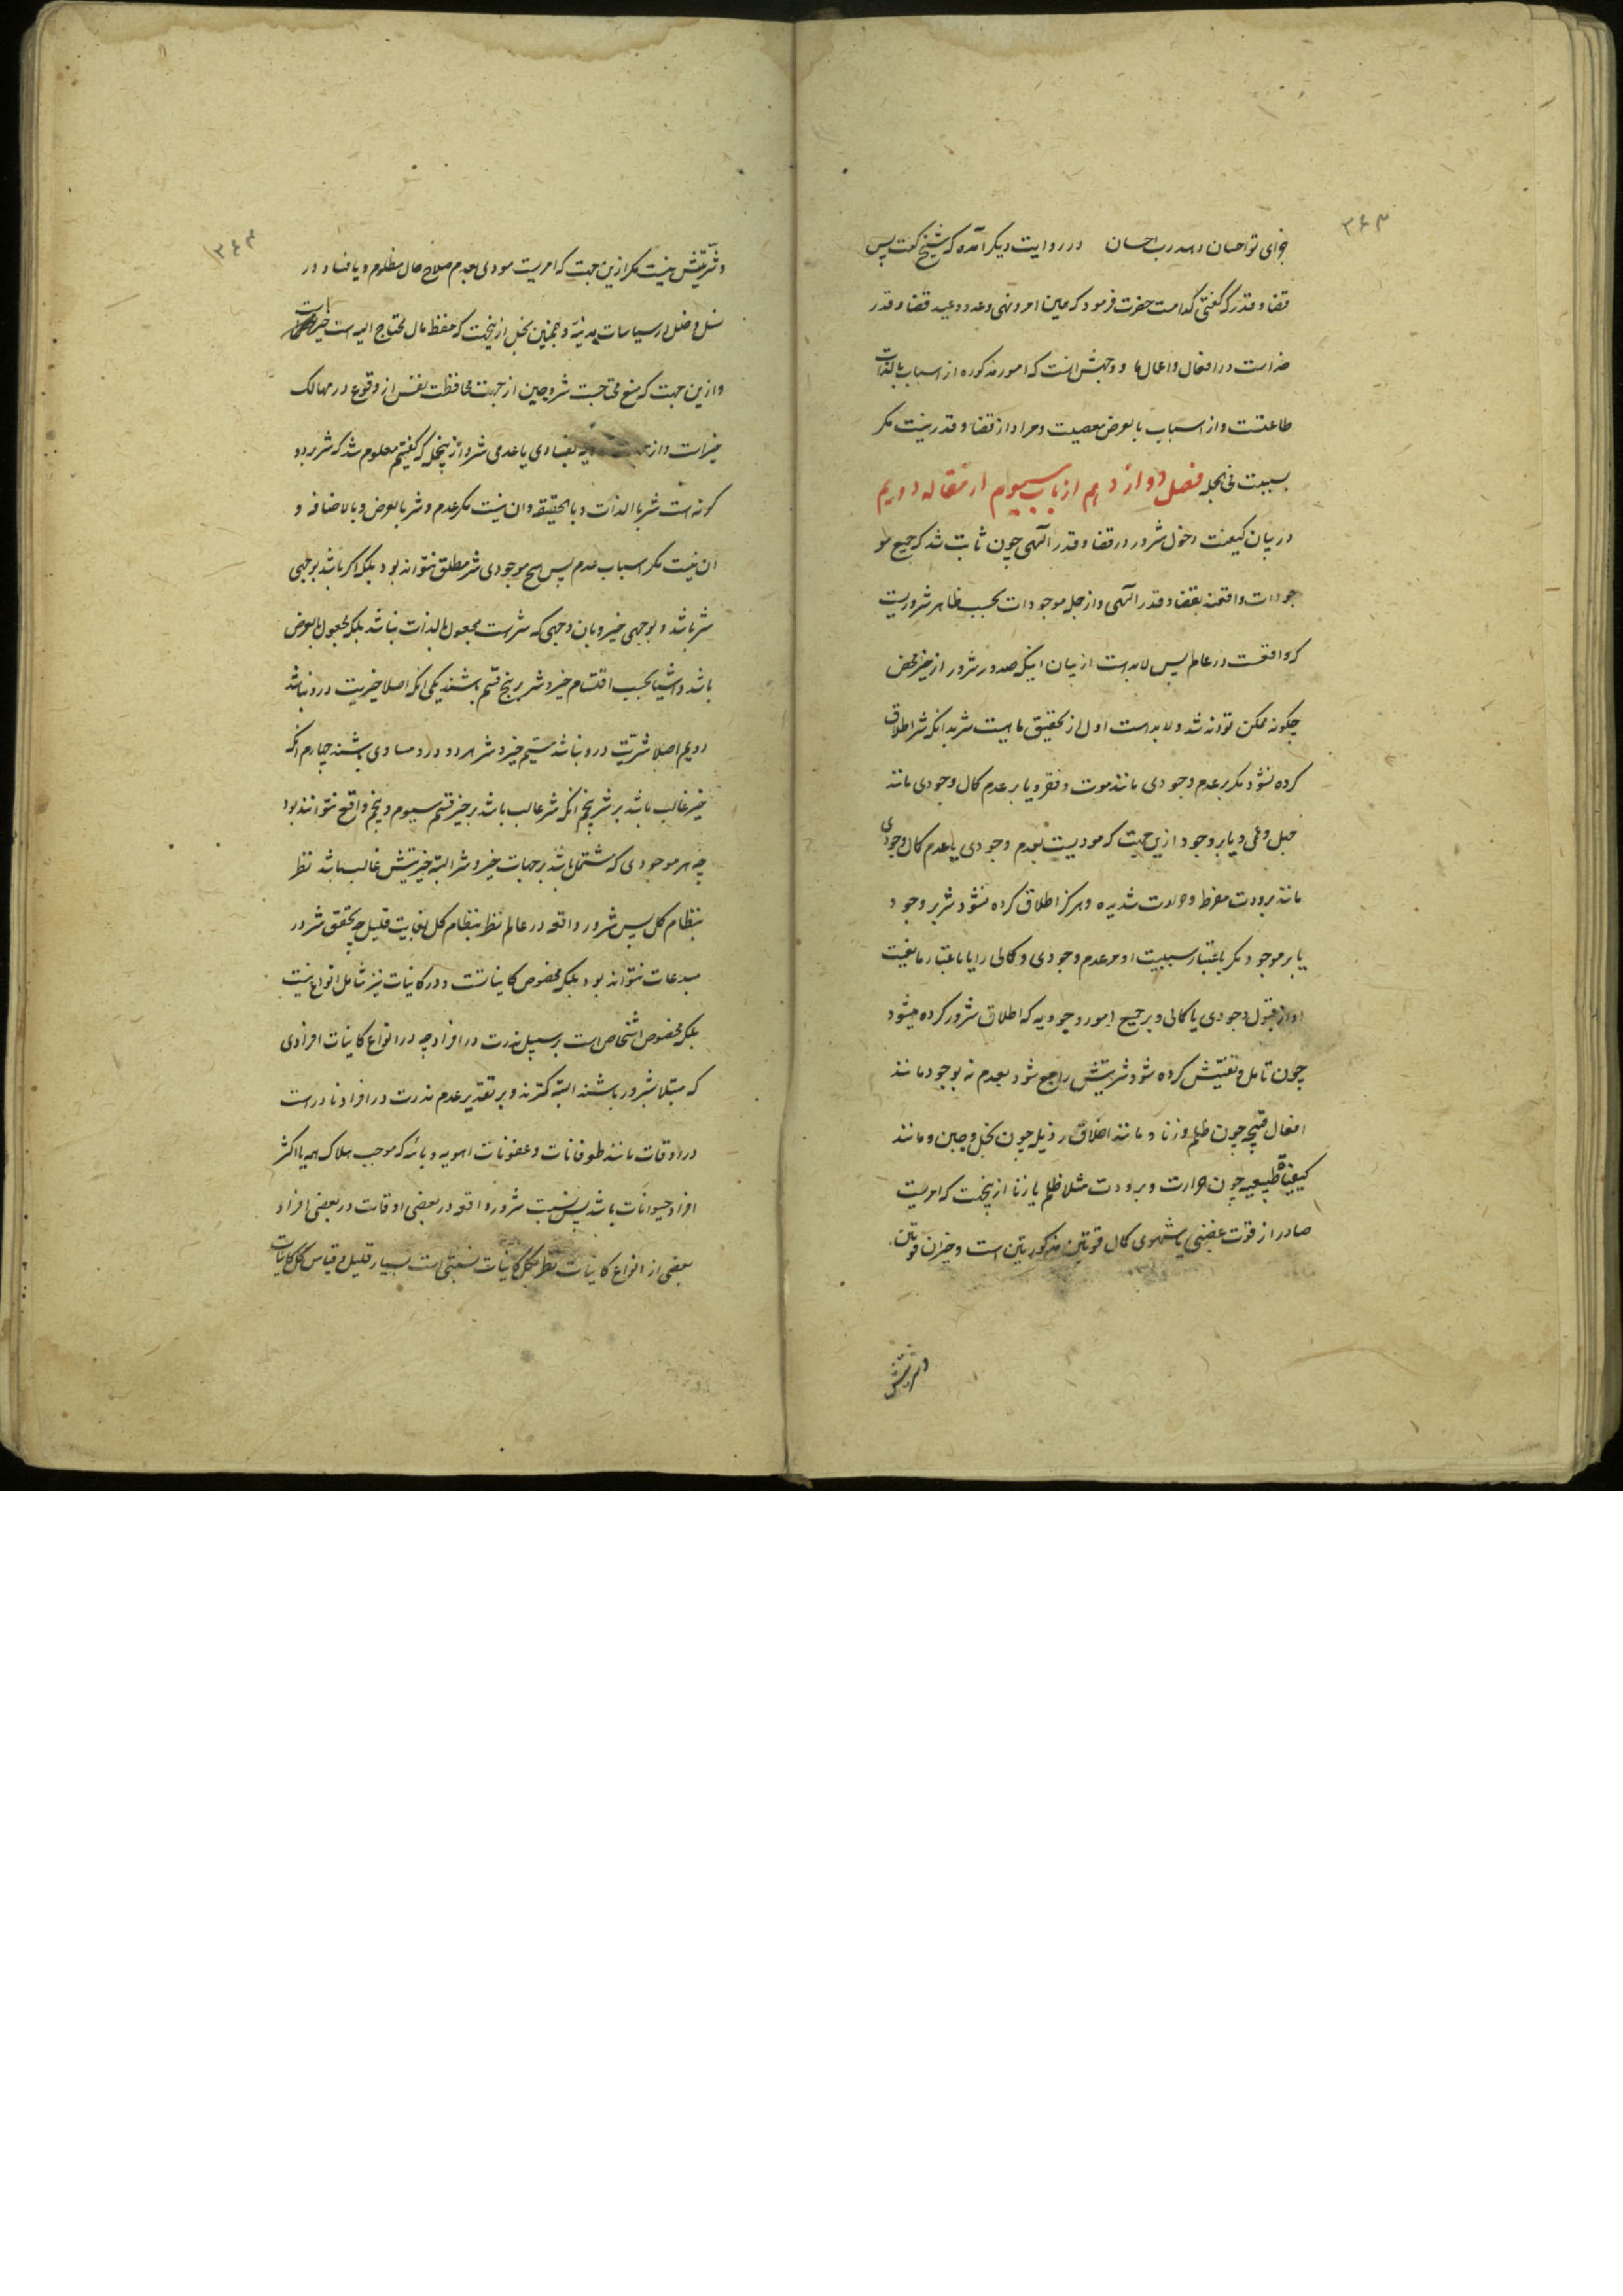 ۳۶۳
جزای تو احسان دهد رب احسان در روایت دیکر آمده که شیخ کفت پس
قضا و قدر که کفتی کدامست حضرت فرمود که همین امر و نهی و عدد وعید قضا و قدر
خداست در افعال و اعمال ما و وجهش انست که امور مذکوره از اسباب بالذات
طاعتست و از اسباب بالعرض معصیت و مراد از قضا و قدر نیست مکر
سببیت فی الجمله فصل دوازدهم از باب سیوم از مقاله دویم
در بیان کیفیت دخول شرور در قضا و قدر الهی چون ثابت شد که جمیع مو
جودات واقعند بقضا و قدر الهی و از جمله موجودات بحسب ظاهر شروریست
که واقعست در عالم پس لابد است از بیان اینکه صدور شرور از خیر محض
چکونه ممکن تواند شد و لابد است اول از تحقیق ماهیت شر بدانکه شر اطلاق
کرده نشود مکر بر عدم وجودی مانند موت و فقر و یا بر عدم کمال وجودی مانند
جهل و عمی و یا بر وجود ازین جهت که مودیست بعدم وجودی یا عدم کمال وجودی
مانند برودت مفرط و حرارت شدیده و هرکز اطلاق کرده نشود شر بر وجود
یا بر موجود مکر باعتبار سببیت او مر عدم وجودی و کمالی را یا باعتبار مانعیت
او از قبول وجودی یا کمالی و بر جمیع امور وجودیه که اطلاق شرور کرده میشود
چون تامل و تفتیش کرده شود شریتش راجع شود بعدم نه بوجود مانند
افعال قبیحه چون ظلم و زنا و مانند اخلاق رذیله چون بخل و جبن و مانند
کیفیات طبیعیه چون حرارت و برودت مثلا ظلم یا زنا ازینجهت که امریست
صادر از قوت غضبی یا شهوی کمال قوتین مذکورتین است و خیر ان قوتین
و شریتش
۳۶۴
و شریتش نیست مکر ازین جهت که امریست مودی بعدم صلاح حال مظلوم و یا فساد در
نسل و خلل در سیاسات مدنیه و همچنین بخل ازینجهت که حفظ مال محتاج الیه است خیرات
و ازین جهت که منع محتاجست شر و جبن از جهت محافظت نفس از وقوع در مهالک
خیرات و از یه بفسادی یا عدمی شر و از ینجمله که کفتیم معلوم شد که شر بر دو
کونه است شر بالذات و بالحقیقه و ان نیست مکر عدم و شر بالعرض و بالاضافه و
ان نیست مکر اسباب عدم پس هیچ موجودی شر مطلق نتواند بود بلکه اکر باشد بوجهی
شر باشد و بوجهی خیر و بان وجهی که شرست مجعول بالذات نباشد بلکه مجعول بالعرض
باشد و اشیا بحسب اقسام خیر و شر بر پنج قسم باشند یکی انکه اصلا خیریت درو نباشد
دویم اصلا شریت درو نباشد سیم خیر و شر هر دو درو مساوی باشند چهارم انکه
خیر غالب باشد بر شر پنجم انکه شر غالب باشد بر خیر قسم سیوم و پنجم واقع نتوانند بود
چه هر موجودی که مشتمل باشد بر جهات خیر و شر البته خیریتش غالب باشد نظر
بنظام کل پس شرور واقعه در عالم نظر بنظام کل بغایت قلیل چه تحقق شرور
در مبدعات نتواند بود بلکه مخصوص کایناتست و در کاینات نیز شامل انواع نیست
بلکه مخصوص اشخاص است بر سبیل ندرت در افراد چه در انواع کاینات افرادی
که مبتلا بشرور باشند البته کمترند و بر تقدیر عدم ندرت در افراد نادرست
در اوقات مانند طوفانات و عفونات اهویه وبائه که موجب هلاک همه یا اکثر
افراد حیوانات باشد پس نسبت شرور واقعه در بعضی اوقات در بعضی افراد
بعضی از انواع کاینات نظر بکل کاینات نسبتی است بسیار قلیل و قیاس کل کاینات